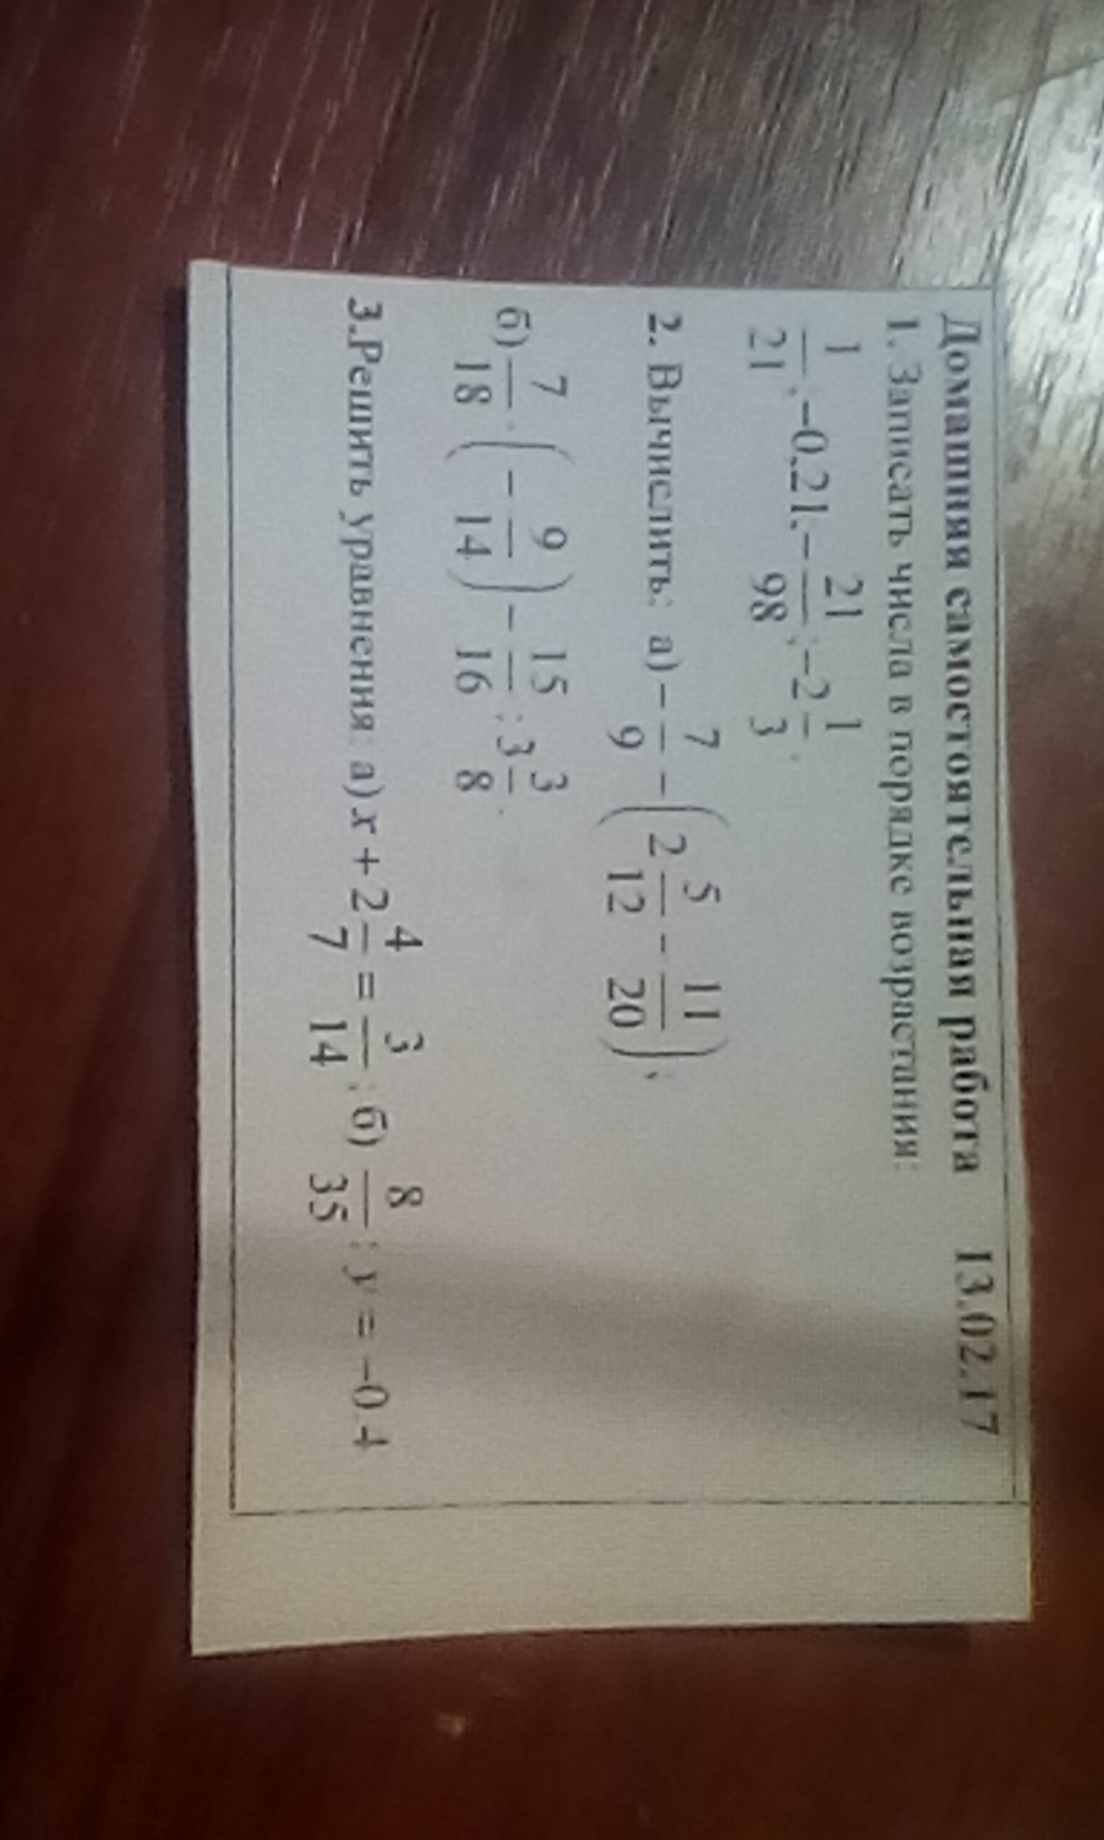 Домашняя самостоятельная работа 13.02.17
1. Записать числа в порядке возрастания:
1/21; -0,21; -21/98; -2 1/3.
2. Вычислить: а) -7/9 - (2 5/12 - 11/20);
б) 7/18 · (-9/14) - 15/16 : 3 3/8.
3.Решить уравнения: а) x + 2 4/7 = 3/14; б) 8/35 : y = -0,4